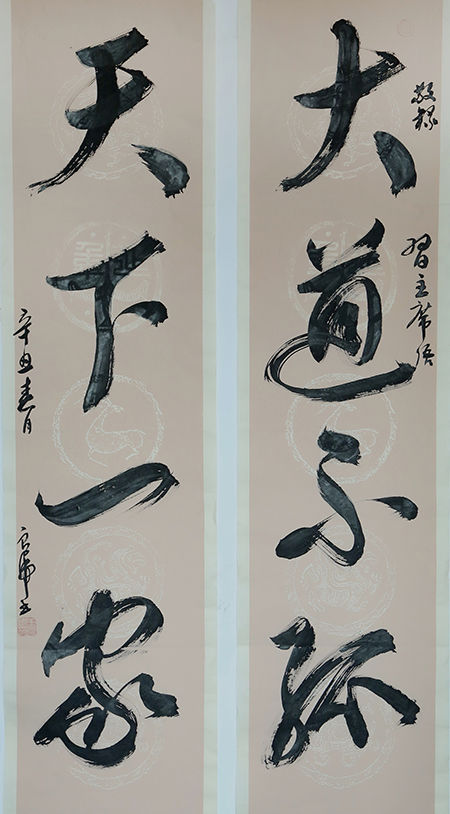 敬録
習主席語
大道不孤
天下一家
辛丑春月